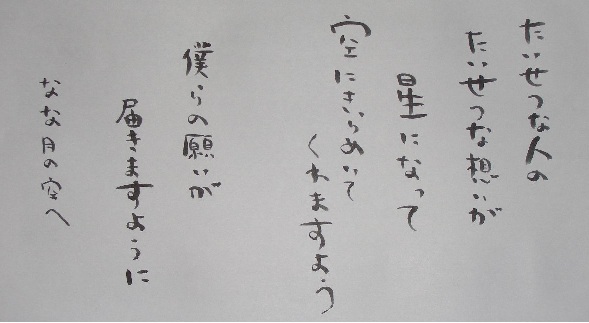 たいせつな人の
たいせつな想いが
星になって
空にきらめいて
くれますよう
僕らの願いが
届きますように
なな月の空へ